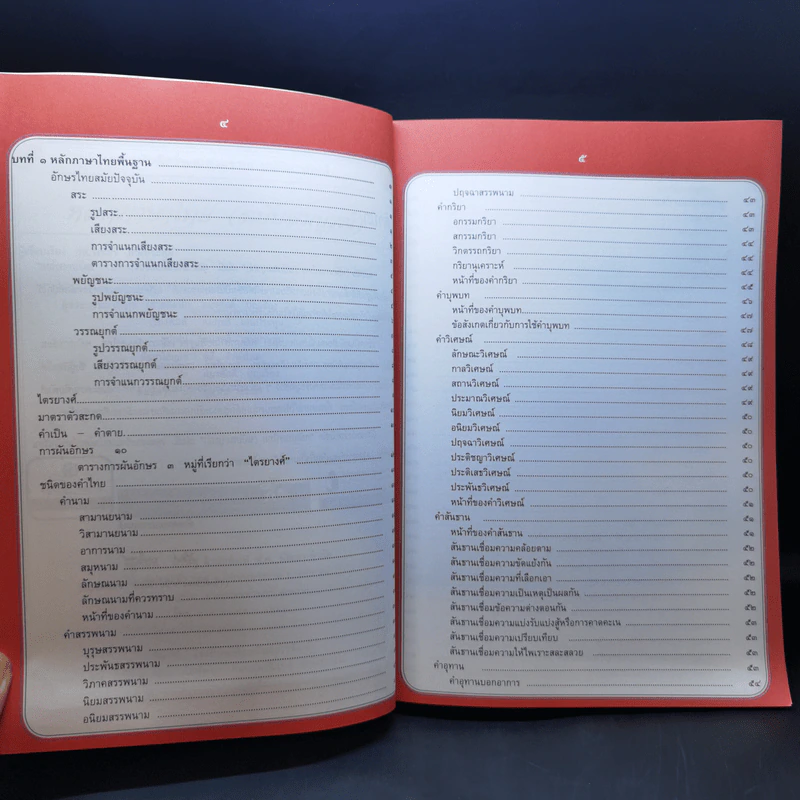 ๔
บทที่ ๑ หลักภาษาไทยพื้นฐาน
อักษรไทยสมัยปัจจุบัน
สระ
รูปสระ
เสียงสระ
การจำแนกเสียงสระ
ตารางการจำแนกเสียงสระ
พยัญชนะ
รูปพยัญชนะ
การจำแนกพยัญชนะ
วรรณยุกต์
รูปวรรณยุกต์
เสียงวรรณยุกต์
การจำแนกวรรณยุกต์
ไตรยางศ์
มาตราตัวสะกด
คำเป็น – คำตาย
การผันอักษร ๑๐
ตารางการผันอักษร ๓ หมู่ที่เรียกว่า "ไตรยางค์"
ชนิดของคำไทย
คำนาม
สามานยนาม
วิสามานยนาม
อาการนาม
สมุหนาม
ลักษณนาม
ลักษณนามที่ควรทราบ
หน้าที่ของคำนาม
คำสรรพนาม
บุรุษสรรพนาม
ประพันธสรรพนาม
วิภาคสรรพนาม
นิยมสรรพนาม
อนิยมสรรพนาม
๕
ปฤจฉาสรรพนาม ๔๓
คำกริยา ๔๓
อกรรมกริยา ๔๓
สกรรมกริยา ๔๔
วิกตรรถกริยา ๔๔
กริยานุเคราะห์ ๔๔
หน้าที่ของคำกริยา ๔๕
คำบุพบท ๔๖
หน้าที่ของคำบุพบท ๔๗
ข้อสังเกตเกี่ยวกับการใช้คำบุพบท ๔๗
คำวิเศษณ์ ๔๘
ลักษณะวิเศษณ์ ๔๙
กาลวิเศษณ์ ๔๙
สถานวิเศษณ์ ๔๙
ประมาณวิเศษณ์ ๔๙
นิยมวิเศษณ์ ๕๐
อนิยมวิเศษณ์ ๕๐
ปฤจฉาวิเศษณ์ ๕๐
ประติชญาวิเศษณ์ ๕๐
ประติเสธวิเศษณ์ ๕๐
ประพันธวิเศษณ์ ๕๐
หน้าที่ของคำวิเศษณ์ ๕๑
คำสันธาน ๕๑
หน้าที่ของคำสันธาน ๕๑
สันธานเชื่อมความคล้อยตาม ๕๒
สันธานเชื่อมความขัดแย้งกัน ๕๒
สันธานเชื่อมความที่เลือกเอา ๕๒
สันธานเชื่อมความเป็นเหตุเป็นผลกัน ๕๒
สันธานเชื่อมข้อความต่างตอนกัน ๕๒
สันธานเชื่อมความแบ่งรับแบ่งสู้หรือการคาดคะเน ๕๓
สันธานเชื่อมความเปรียบเทียบ ๕๓
สันธานเชื่อมความให้ไพเราะสละสลวย ๕๓
คำอุทาน ๕๓
คำอุทานบอกอาการ ๕๔